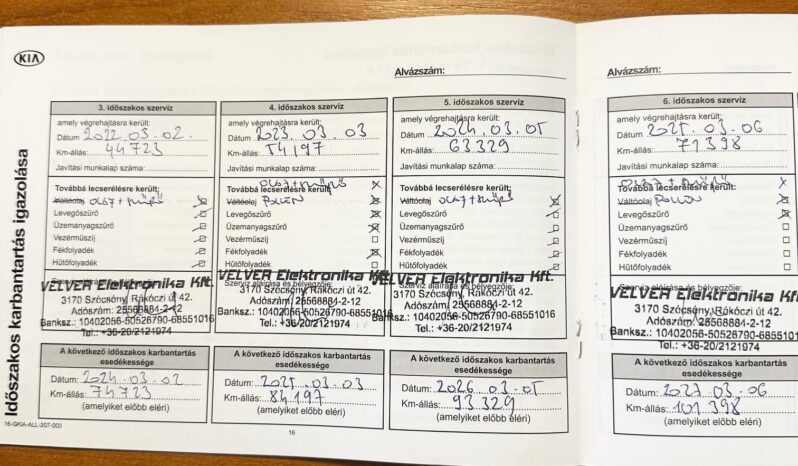 KIA
Időszakos karbantartás igazolása
Alvázszám:
3. időszakos szerviz
amely végrehajtásra került:
Dátum 2022.03.02.
Km-állás: 44723
Javítási munkalap száma:
Továbbá lecserélésre került:
Váltóolaj OLAJ + SZŰRŐ
Levegőszűrő
Üzemanyagszűrő
Vezérműszíj
Fékfolyadék
Hűtőfolyadék
VELVER Elektronika Kft.
3170 Szécsény, Rákóczi út 42.
Adószám: 25568884-2-12
Banksz.: 10402056-50526790-68551016
Tel.: +36-20/2121974
A következő időszakos karbantartás
esedékessége
Dátum: 2024.03.02
Km-állás: 74723
(amelyiket előbb eléri)
4. időszakos szerviz
amely végrehajtásra került:
Dátum 2023.03.03
Km-állás: 54197
Javítási munkalap száma:
OLAJ + SZŰRŐ
Továbbá lecserélésre került:
Váltóolaj POLLEN
Levegőszűrő
Üzemanyagszűrő
Vezérműszíj
Fékfolyadék
Hűtőfolyadék
VELVER Elektronika Kft.
3170 Szécsény, Rákóczi út 42.
Adószám: 25568884-2-12
Banksz.: 10402056-50526790-68551016
Tel.: +36-20/2121974
A következő időszakos karbantartás
esedékessége
Dátum: 2025.03.03
Km-állás: 84197
(amelyiket előbb eléri)
5. időszakos szerviz
amely végrehajtásra került:
Dátum 2024.03.05
Km-állás: 63329
Javítási munkalap száma:
Továbbá lecserélésre került:
Váltóolaj OLAJ + SZŰRŐ
Levegőszűrő
Üzemanyagszűrő
Vezérműszíj
Fékfolyadék
Hűtőfolyadék
Szerviz aláírása és bélyegzője:
VELVER Elektronika Kft.
3170 Szécsény, Rákóczi út 42.
Adószám: 25568884-2-12
Banksz.: 10402056-50526790-68551016
Tel.: +36-20/2121974
A következő időszakos karbantartás
esedékessége
Dátum: 2026.03.05
Km-állás: 93329
(amelyiket előbb eléri)
16-GKIA-ALL-207-003
16
Alvázszám:
6. időszakos szerviz
amely végrehajtásra került:
Dátum 2025.03.06
Km-állás: 71398
Javítási munkalap száma:
OLAJ + SZŰRŐ
Továbbá lecserélésre került:
Váltóolaj POLLEN
Levegőszűrő
Üzemanyagszűrő
Vezérműszíj
Fékfolyadék
Hűtőfolyadék
VELVER Elektronika Kft.
3170 Szécsény, Rákóczi út 42.
Adószám: 25568884-2-12
Banksz.: 10402056-50526790-68551016
Tel.: +36-20/2121974
A következő időszakos karbantartás
esedékessége
Dátum: 2027.03.06
Km-állás: 101398
(amelyiket előbb eléri)